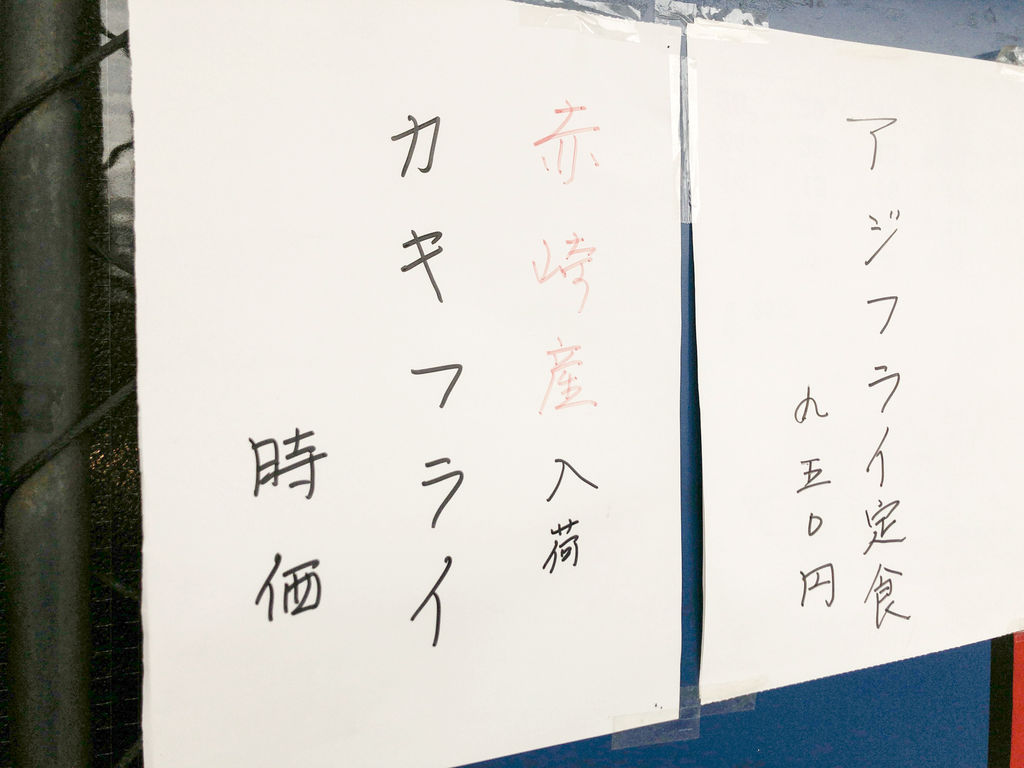 アジフライ定食
九五〇円
赤崎産入荷
カキフライ
時価